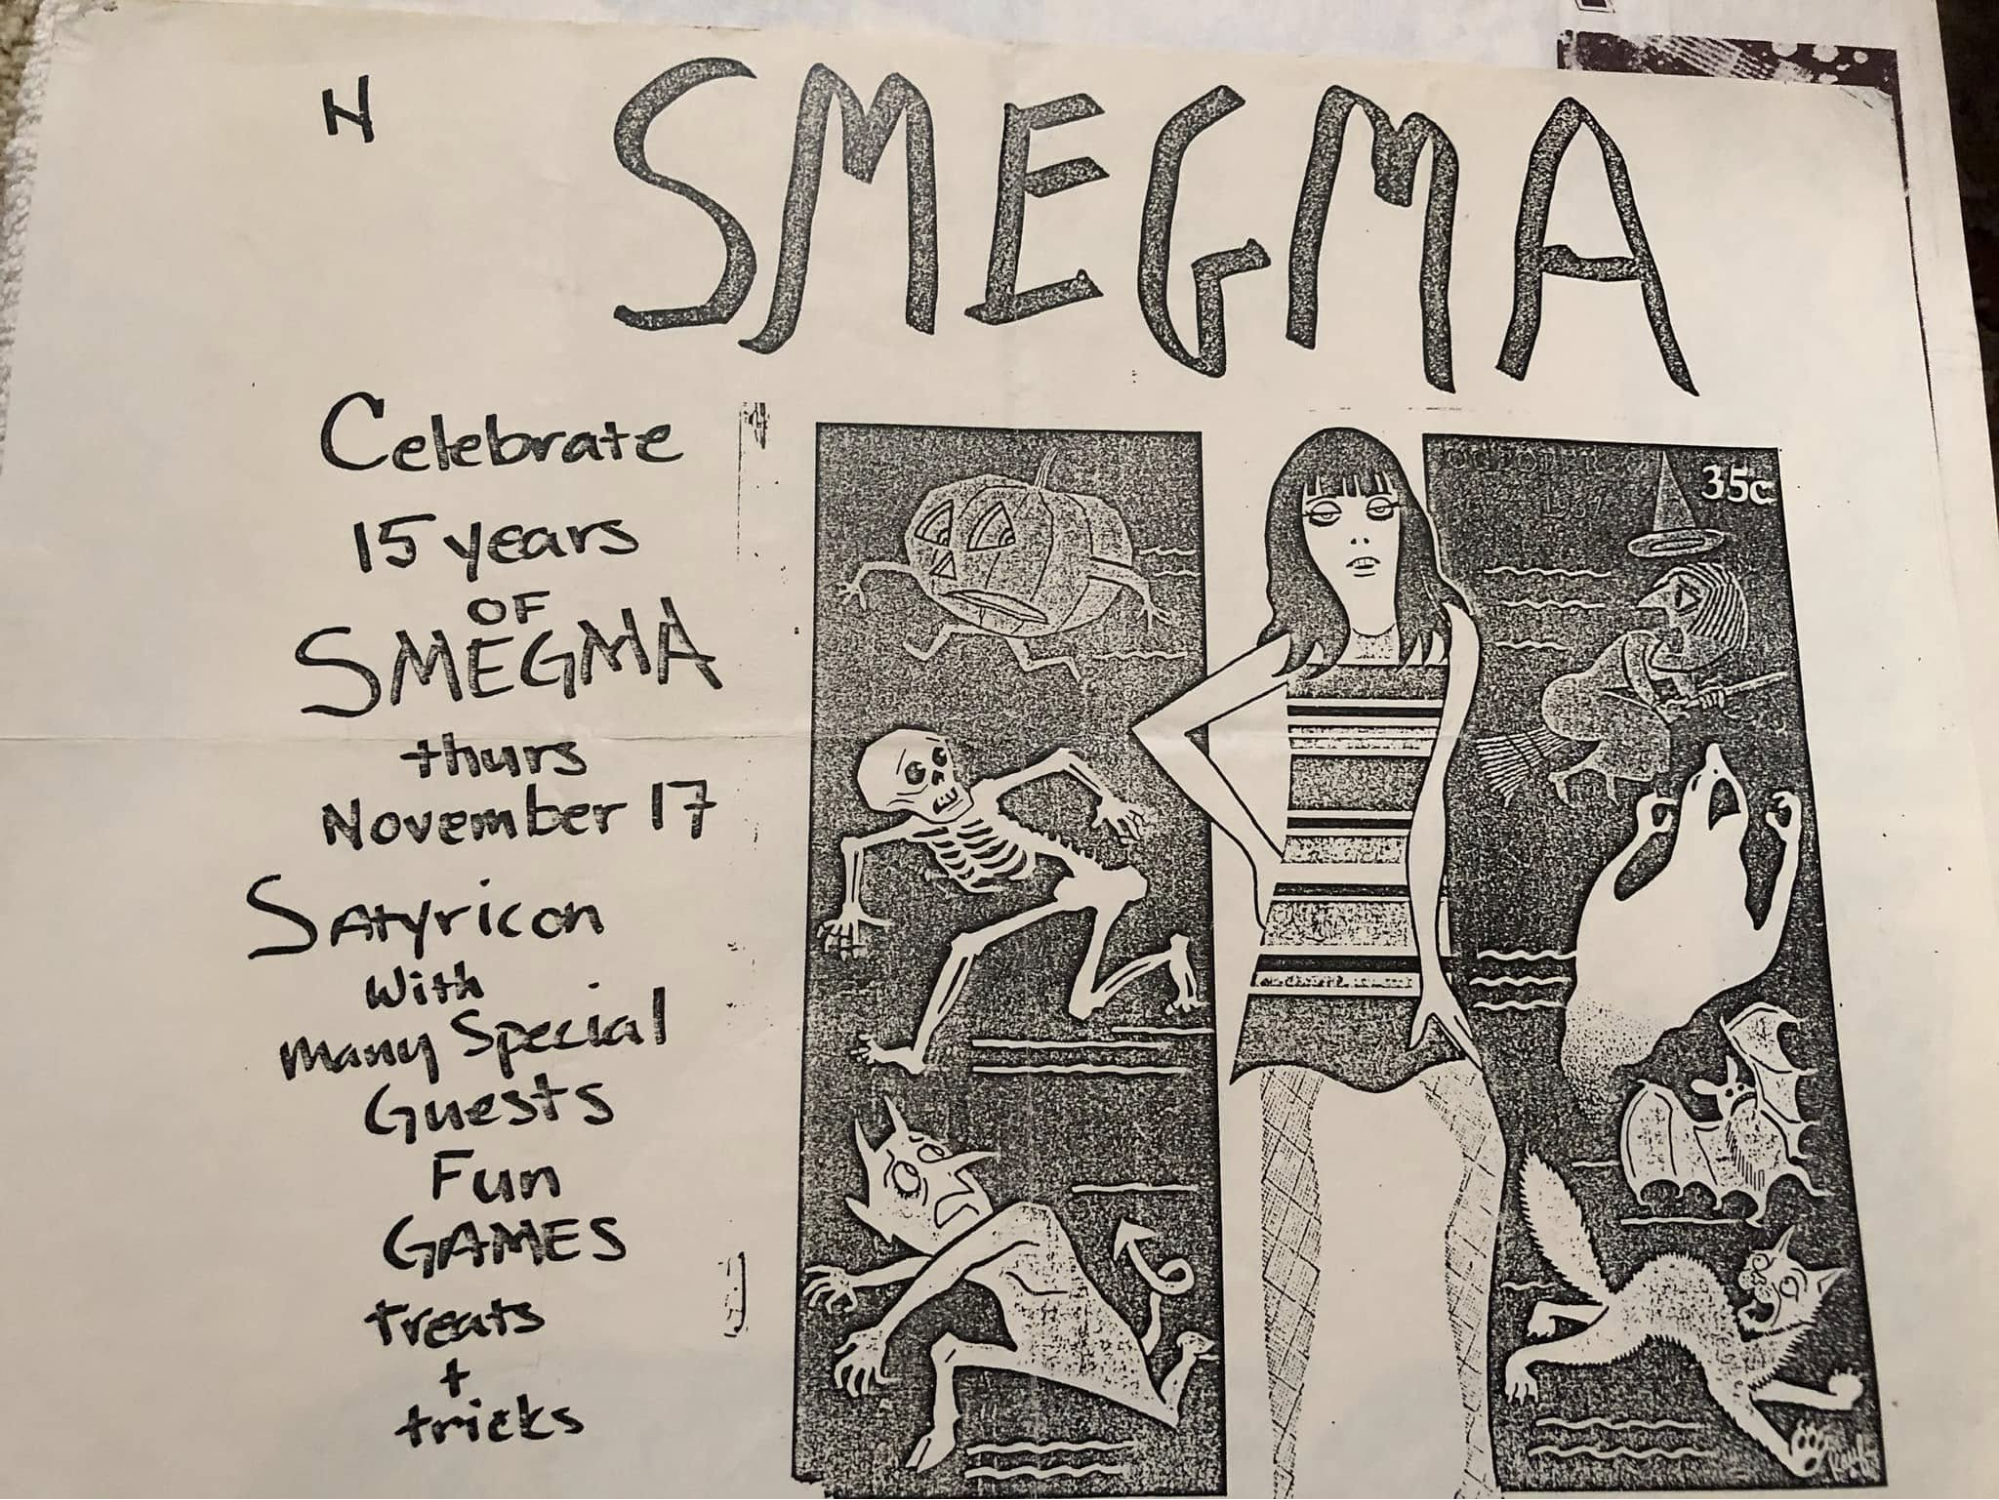 N
SMEGMA
Celebrate
15 years
OF
SMEGMA
thurs
November 17
Satyricon
with
many Special
Guests
Fun
GAMES
treats
+
tricks
OCTOBER
1967
35c